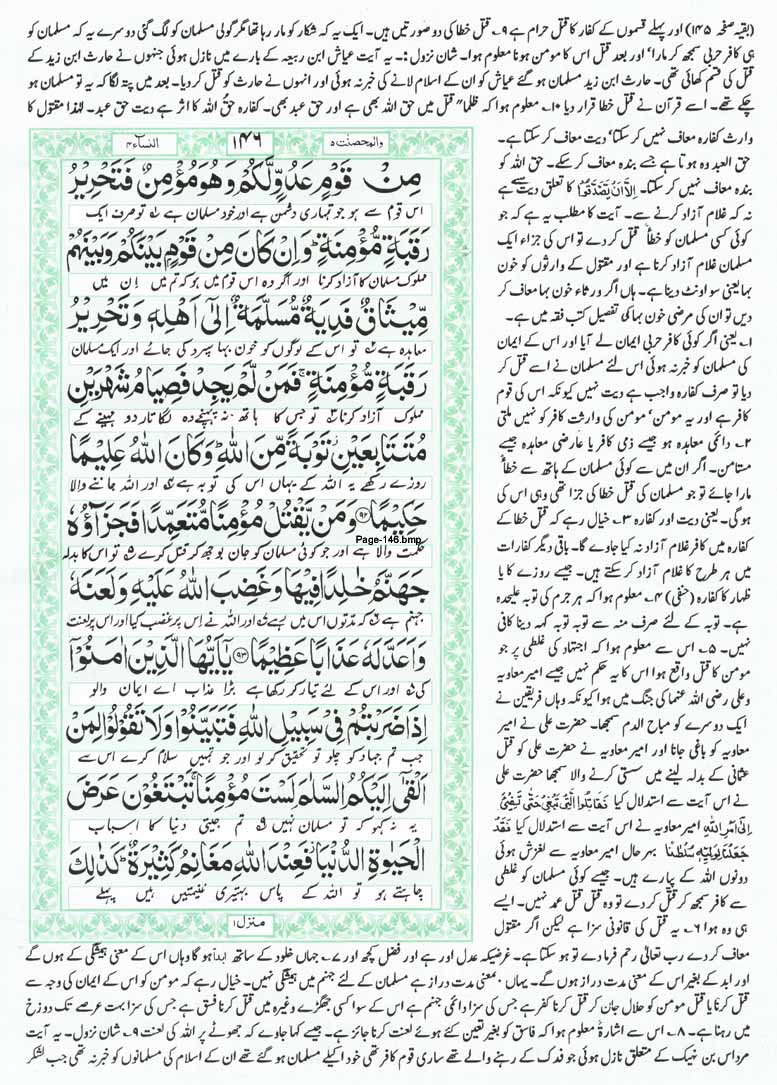 (بقیہ صفحہ ۱۴۵) اور پہلے قسموں کے کفار کا قتل حرام ہے ۹۔ قتل خطا کی دو صورتیں ہیں۔ ایک یہ کہ شکار کو مار رہا تھا مگر گولی مسلمان کو لگ گئی دوسرے یہ کہ مسلمان کو
ہی کافر حربی سمجھ کر مارا' اور بعد قتل اس کا مومن ہونا معلوم ہوا۔ شان نزول :۔ یہ آیت عیاش ابن ربیعہ کے بارے میں نازل ہوئی جنہوں نے حارث ابن زید کے
قتل کی قسم کھائی تھی۔ حارث ابن زید مسلمان ہو گئے عیاش کو ان کے اسلام لانے کی خبر نہ ہوئی اور انہوں نے حارث کو قتل کر دیا۔ بعد میں پتہ لگا کہ یہ تو مسلمان ہو
چکے تھے۔ اسے قرآن نے قتل خطا قرار دیا ۱۰۔ معلوم ہوا کہ ظلماً" قتل میں حق اللہ بھی ہے اور حق عبد بھی۔ کفارہ حق اللہ کا اثر ہے دیت حق عبد۔ لہٰذا مقتول کا
وارث کفارہ معاف نہیں کر سکتا' دیت معاف کر سکتا ہے۔
حق العبد وہ ہوتا ہے جسے بندہ معاف کر سکے۔ حق اللہ کو
بندہ معاف نہیں کر سکتا۔ اِلَّا اَنْ یَّصَّدَّقُوْا کا تعلق دیت سے ہے
نہ کہ غلام آزاد کرنے سے۔ آیت کا مطلب یہ ہے کہ جو
کوئی کسی مسلمان کو خطاً قتل کر دے تو اس کی جزاء ایک
مسلمان غلام آزاد کرنا ہے اور مقتول کے وارثوں کو خون
بہا یعنی سو اونٹ دینا ہے۔ ہاں اگر ورثاء خون بہا معاف کر
دیں تو ان کی مرضی خون بہا کی تفصیل کتب فقہ میں ہے۔
۱۔ یعنی اگر کوئی کافر حربی ایمان لے آیا اور اس کے ایمان
کی مسلمان کو خبر نہ ہوئی اس لئے مسلمان نے اسے قتل کر
دیا تو صرف کفارہ واجب ہے دیت نہیں کیونکہ اس کی قوم
کافر ہے اور یہ مومن' مومن کی وارثت کافر کو نہیں ملتی
۲۔ دائمی معاہدہ ہو جیسے ذمی کافر یا عارضی معاہدہ جیسے
مستامن۔ اگر ان میں سے کوئی مسلمان کے ہاتھ سے خطاً
مارا جائے تو جو مسلمان کی قتل خطا کی جزا تھی وہی اس کی
ہوگی۔ یعنی دیت اور کفارہ ۳۔ خیال رہے کہ قتل خطا کے
کفارہ میں کافر غلام آزاد نہ کیا جاوے گا۔ باقی دیگر کفارات
میں ہر طرح کا غلام آزاد کر سکتے ہیں۔ جیسے روزے کا یا
ظہار کا کفارہ (حنفی) ۴۔ معلوم ہوا کہ ہر جرم کی توبہ علیحدہ
ہے۔ توبہ کے لئے صرف منہ سے توبہ توبہ کہہ دینا کافی
نہیں۔ ۵۔ اس سے معلوم ہوا کہ اجتہاد کی غلطی پر جو
مومن کا قتل واقع ہوا اس کا یہ حکم نہیں جیسے امیر معاویہ
و علی رضی اللہ عنہما کی جنگ میں ہوا کیونکہ وہاں فریقین نے
ایک دوسرے کو مباح الدم سمجھا۔ حضرت علی نے امیر
معاویہ کو باغی جانا اور امیر معاویہ نے حضرت علی کو قتل
عثمانی کے بدلہ لینے میں سستی کرنے والا سمجھا حضرت علی
نے اس آیت سے استدلال کیا فَقَاتِلُوا الَّتِیْ تَبْغِیْ حَتّٰی تَفِیْٓءَ
اِلٰٓی اَمْرِ اللّٰهِ امیر معاویہ نے اس آیت سے استدلال کیا فَقَدْ
جَعَلْنَا لِوَلِیِّهٖ سُلْطٰنًا بہر حال امیر معاویہ سے لغزش ہوئی
دونوں اللہ کے پیارے ہیں۔ جیسے کوئی مسلمان کو غلطی
سے کافر سمجھ کر قتل کر دے تو وہ قتل قتل عمد نہیں۔ ایسے
ہی وہ ہوا ۶۔ یہ قتل کی قانونی سزا ہے لیکن اگر مقتول
والمحصنت ۵ ۱۴۶ النساء ۴
مِنْ قَوْمٍ عَدُوٍّ لَّكُمْ وَهُوَ مُؤْمِنٌ فَتَحْرِيْرُ
اس قوم سے ہو جو تمہاری دشمن ہے اور خود مسلمان ہے تو صرف ایک
رَقَبَةٍ مُّؤْمِنَةٍ ۭ وَاِنْ كَانَ مِنْ قَوْمٍۢ بَيْنَكُمْ وَبَيْنَهُمْ
مملوک مسلمان کا آزاد کرنا اور اگر وہ اس قوم میں ہو کہ تم میں ان میں
مِّيْثَاقٌ فَدِيَةٌ مُّسَلَّمَةٌ اِلٰٓى اَهْلِهٖ وَتَحْرِيْرُ
معاہدہ ہے تو اس کے لوگوں کو خون بہا سپرد کی جائے اور ایک مسلمان
رَقَبَةٍ مُّؤْمِنَةٍ ۚ فَمَنْ لَّمْ يَجِدْ فَصِيَامُ شَهْرَيْنِ
مملوک آزاد کرنا تو جس کا ہاتھ نہ پہنچے وہ لگاتار دو مہینے کے
مُتَتَابِعَيْنِ ۡ تَوْبَةً مِّنَ اللّٰهِ ۭ وَكَانَ اللّٰهُ عَلِيْمًا
روزے رکھے یہ اللہ کے یہاں اس کی توبہ ہے اور اللہ جاننے والا
حَكِيْمًا ﴿۹۲﴾ وَمَنْ يَّقْتُلْ مُؤْمِنًا مُّتَعَمِّدًا فَجَزَاۗؤُهٗ
Page-146.bmp
حکمت والا ہے اور جو کوئی مسلمان کو جان بوجھ کر قتل کرے تو اس کا بدلہ
جَهَنَّمُ خٰلِدًا فِيْهَا وَغَضِبَ اللّٰهُ عَلَيْهِ وَلَعَنَهٗ
جہنم ہے کہ مدتوں اس میں رہے اور اللہ نے اس پر غضب کیا اور اس پر لعنت
وَاَعَدَّ لَهٗ عَذَابًا عَظِيْمًا ﴿۹۳﴾ يٰٓاَيُّهَا الَّذِيْنَ اٰمَنُوْٓا
کی اور اس کے لئے تیار کر رکھا ہے بڑا عذاب اے ایمان والو
اِذَا ضَرَبْتُمْ فِيْ سَبِيْلِ اللّٰهِ فَتَبَيَّنُوْا وَلَا تَقُوْلُوْا لِمَنْ
جب تم جہاد کو چلو تو تحقیق کر لو اور جو تمہیں سلام کرے اس سے
اَلْقٰٓى اِلَيْكُمُ السَّلٰمَ لَسْتَ مُؤْمِنًا ۚ تَبْتَغُوْنَ عَرَضَ
یہ نہ کہو کہ تو مسلمان نہیں تم جیتی دنیا کا اسباب
الْحَيٰوةِ الدُّنْيَا ۡ فَعِنْدَ اللّٰهِ مَغَانِمُ كَثِيْرَةٌ ۭ كَذٰلِكَ
چاہتے ہو تو اللہ کے پاس بہتیری غنیمتیں ہیں پہلے
منزل ۱
معاف کر دے رب تعالٰی رحم فرما دے تو ہو سکتا ہے۔ غرضیکہ عدل اور ہے اور فضل کچھ اور ۷۔ جہاں خلود کے ساتھ ابداً ہو گا وہاں اس کے معنی ہمیشگی کے ہوں گے
اور ابد کے بغیر اس کے معنی مدت دراز ہوں گے۔ یہاں ۔ بمعنی مدت دراز ہے مسلمان کے لئے جہنم میں ہمیشگی نہیں۔ خیال رہے کہ مومن کو اس کے ایمان کی وجہ سے
قتل کرنا یا قتل مومن کو حلال جان کر قتل کرنا کفر ہے جس کی سزا دائمی جہنم ہے اس کے سوا کسی جھگڑے وغیرہ میں قتل کرنا فسق ہے جس کی سزا بہت عرصے تک دوزخ
میں رہنا ہے۔ ۸۔ اس سے اشارۃً معلوم ہوا کہ فاسق کو بغیر تعین کئے ہوئے لعنت کرنا جائز ہے۔ جیسے کہا جاوے کہ جھوٹے پر اللہ کی لعنت ۹۔ شان نزول۔ یہ آیت
مرداس بن نہیک کے متعلق نازل ہوئی جو فدک کے رہنے والے تھے ساری قوم کافر تھی خود اکیلے مسلمان ہو گئے تھے ان کے اسلام کی مسلمانوں کو خبر نہ تھی جب لشکر